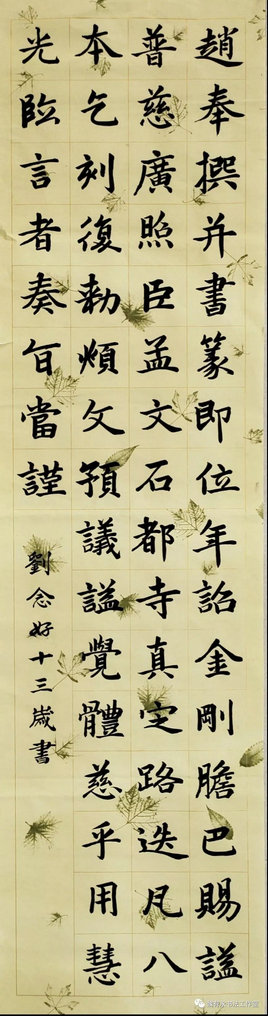 趙奉撰并書篆即位年詔金剛膽巴賜謚
普慈廣照臣孟文石都寺真定路迭凡八
本乞刻復勅頫文預議謚覺體慈乎用慧
光臨言者奏旨當謹
劉念妤十三歲書